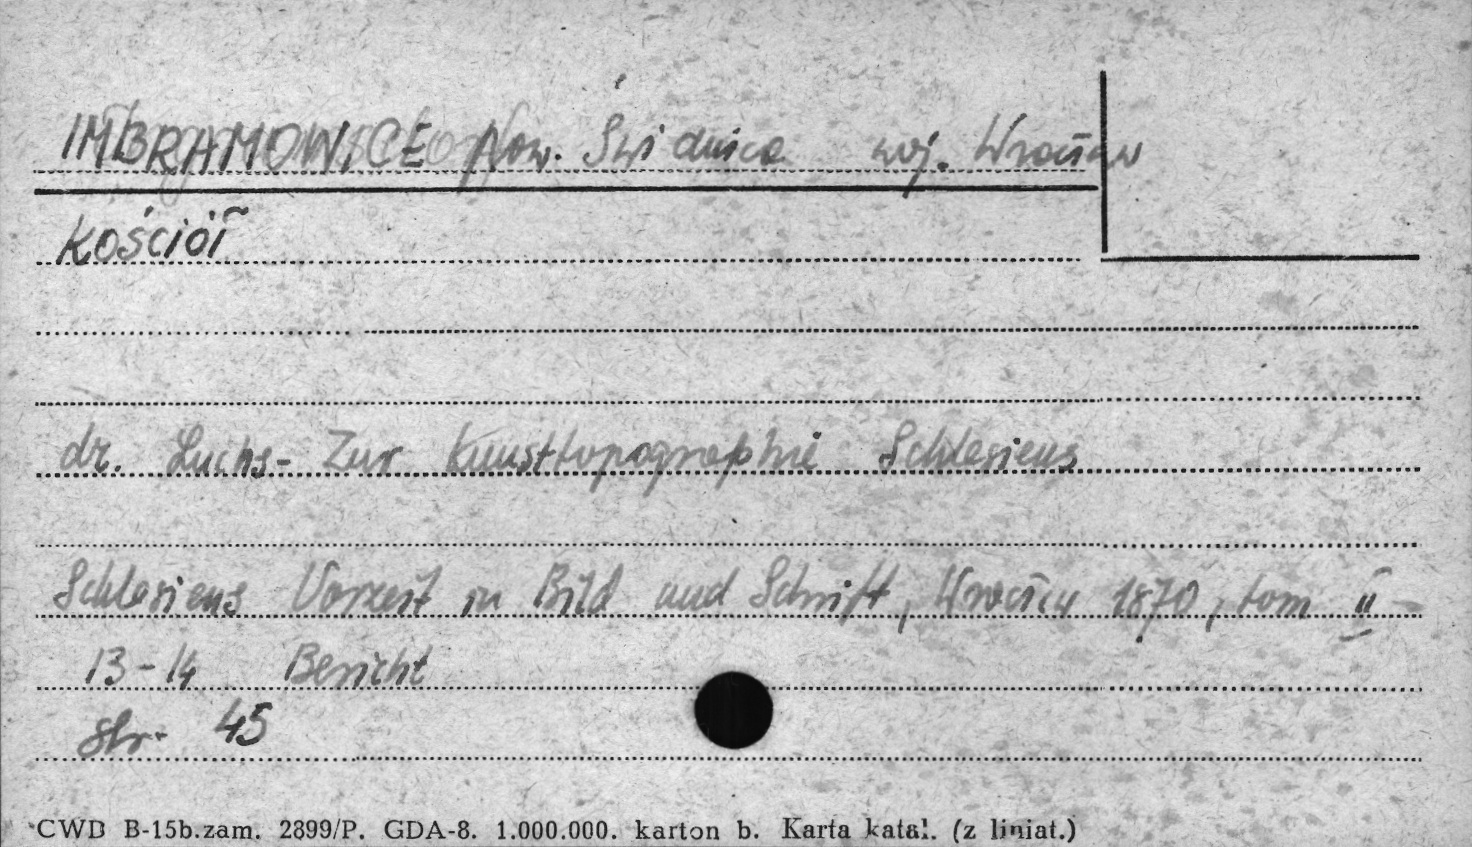 IMBRAMOWICE pow. Świdnica woj. Wrocław
Kościół
dr. Luchs - Zur Kunsttopographie Schlesiens
Schlesiens Vorzeit in Bild und Schrift, Wrocław 1870, tom II
13-14 Bericht
str. 45
CWD B-15b.zam. 2899/P. GDA-8. 1.000.000. karton b. Karta katal. (z liniat.)